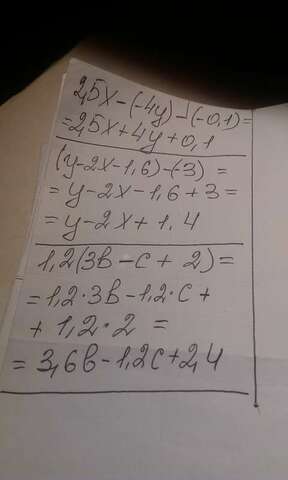 2,5x-(-4y)-(-0,1)=
=2,5x+4y+0,1
(y-2x-1,6)-(-3) =
= y-2x-1,6+3=
= y-2x+1,4
1,2(3в-c+2)=
=1,2·3в-1,2·c+
+1,2·2 =
= 3,6в-1,2c+2,4